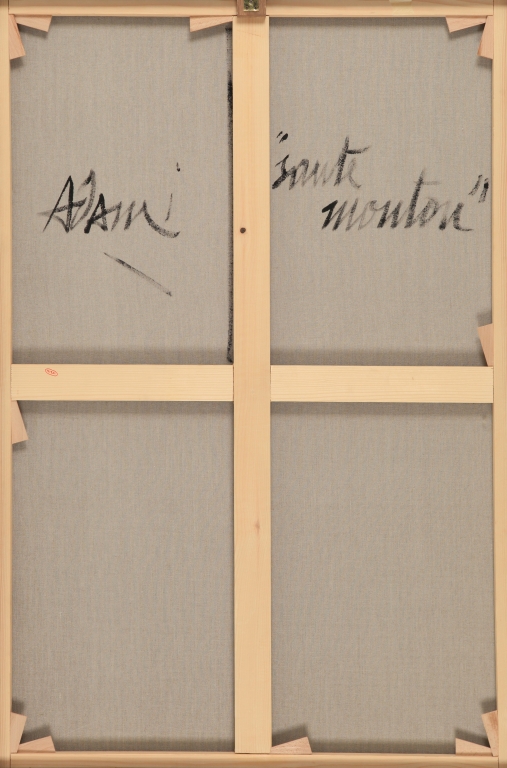 Adami
"saute
mouton"